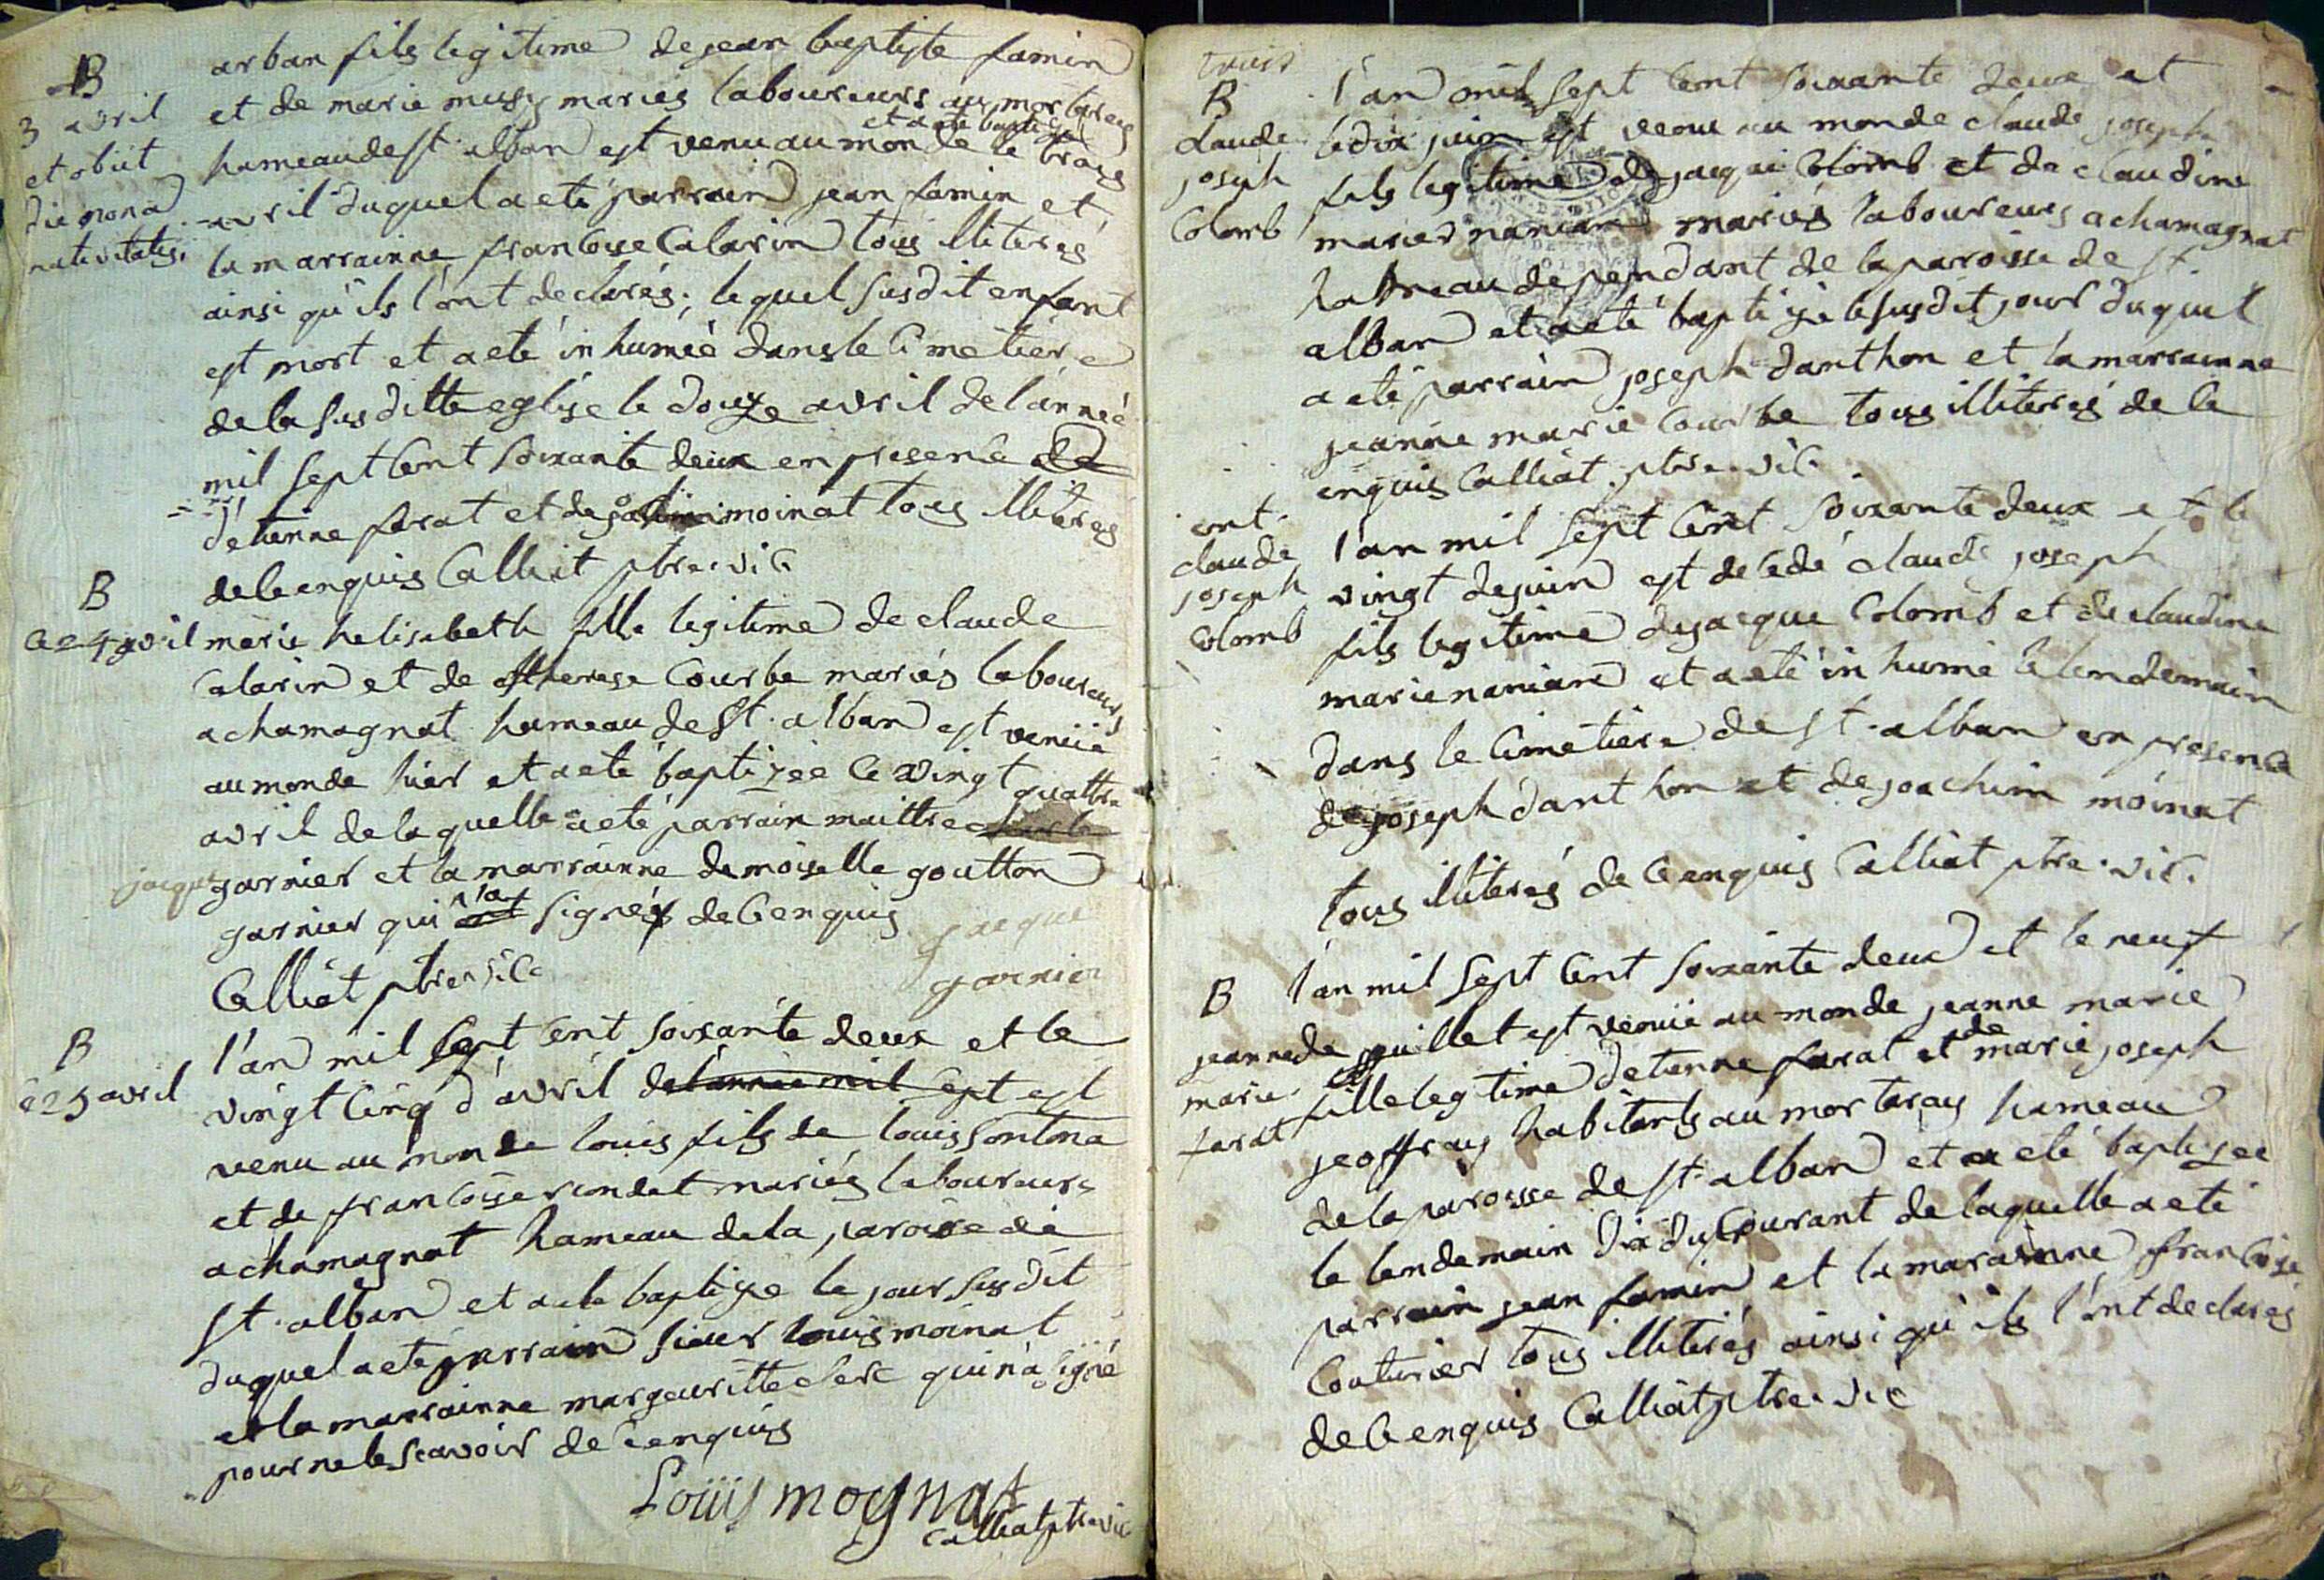 B
3 avril
et obiit
die nona
nativitatis.
arban fils legitime de jean baptiste famin
et de marie musy mariés laboureurs au mortarey
et a ete baptizé
hameau de st. alban est venu au monde le trois
avril duquel a eté parrain jean famin et
la marrainne francoise Calarin tous illiterés
ainsi qu'ils l'ont declarés; lequel susdit enfant
est mort et a eté inhumé dans le Cimetiere
de la susditte eglise le douze avril de l'anneé
mil sept Cent soixante deux en presence de
d'etienne ferat et de moinat tous illiterés
de Ce enquis Calliat ptre. vic.
B
Ce 24 avril
marie helisabeth fille legitime de claude
Calarin et de therese Courbe mariés laboureurs
a chamagnat hameau de St. alban est venüe
au monde hier et a eté baptizeé Ce vingt quattre
avril de laquelle a eté parrain maittre
jacque garnier et la marrainne demoiselle goutton
garnier qui n'a signé de Ce enquis
Calliat ptre vic.
jacque
garnier
B
Ce 25 avril
l'an mil sept Cent soixante deux et le
vingt Cinq d'avril de l'anneé mil sept est
venu au monde louis fils de louis fontona
et de francoise rondet mariés laboureurs
a chamagnat hameau de la paroisse de
st. alban et a ete baptizé le jour susdit
duquel a eté parrain sieur louis moinat
et la marrainne margeuritte clerc qui n'a signé
pour ne le scavoir de Ce enquis
Loüis moynat
Calliat ptre vic
trois
B
claude
joseph
Colomb
l'an mil sept Cent soixante deux et
le dix juin est venu au monde claude joseph
fils legitime de jacque Colomb et de claudine
marie nanian mariés laboureurs a chamagnat
hameau dependant de la paroisse de st.
alban et a eté baptizé le susdit jour duquel
a eté parrain joseph danthon et la marrainne
jeanne marie Courbe tous illiterés de Ce
enquis Calliat. ptre. vic.
ent.
claude
joseph
Colomb
l'an mil sept Cent soixante deux et le
vingt de juin est decedé claude joseph
fils legitime de jacque Colomb et de claudine
marie nanian et a eté inhumé le lendemain
dans le Cimetiere de st. alban en presence
de joseph danthon et de joachim moinat
tous illiterés de Ce enquis Calliat ptre. vic.
B
jeanne
marie
farat
l'an mil sept Cent soixante deux et le neuf
de juillet est venüe au monde jeanne marie
fille legtime d'etienne farat et de marie joseph
jeoffray habitants au mortaray hameau
de la paroisse de st. alban et a eté baptizeé
le lendemain dix du Courant de laquelle a eté
parrain jean famin et la marainne francoise
Couturier tous illiterés ainsi qu'ils l'ont declarés
de Ce enquis Calliat ptre. vic